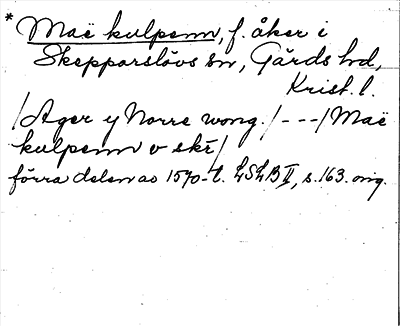 * Maë kulpenn, f. åker i
Skepparslövs sn, Gärds hd,
Krist. l.
/Ager y Norre wong./---/Maë
kulpenn v ske/
förra delen av 1570-t. LSLB II, s. 163. orig.